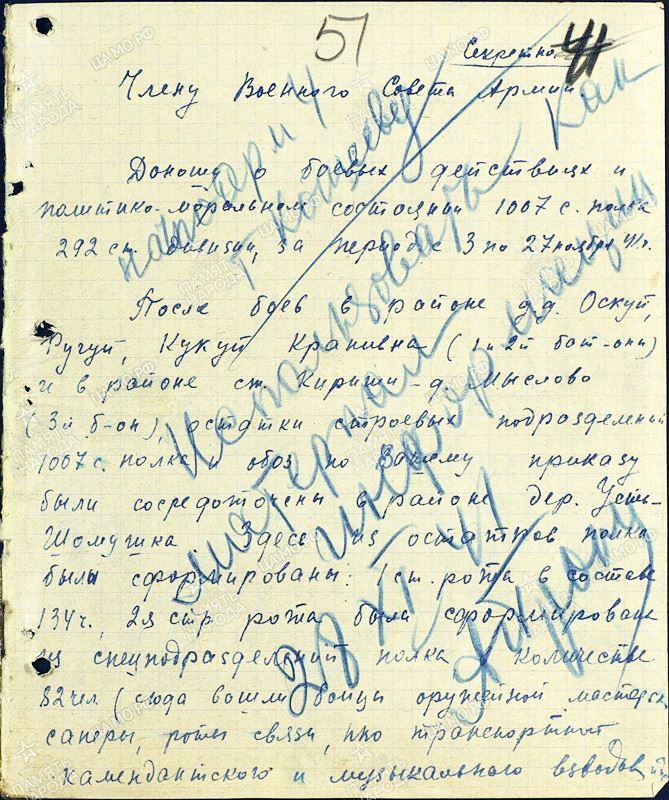 51
Секретно 41
Члену Военного Совета Армии
Доношу о боевых действиях и
политико-моральном состоянии 1007 с. полка
292 ст. дивизии, за период с 3 по 27 ноября 41 г.
После боев в районе д.д. Оскуй,
Ругуй, Кукуй Крапивна (1 и 2й бат-оны)
и в районе ст. Кириши - д. Мыслово
(3й б-он), остатки строевых подразделений
1007 с. полка и обоз по Вашему приказу
были сосредоточены в районе дер. Усть-
Шомушка Здесь из остатков полка
были сформированы: 1 ст. рота в составе
134 ч., 2я стр рота была сформирована
из спецподразделений полка количестве
82 чел (сюда вошли бойцы оружейной мастерск
саперы, роты связи, ппо транспортной
камендантского и музыкального взводов
Использовать как
материал
информации
28 XI 41
ЦАМО.РФ
ПАМЯТЬ НАРОДА